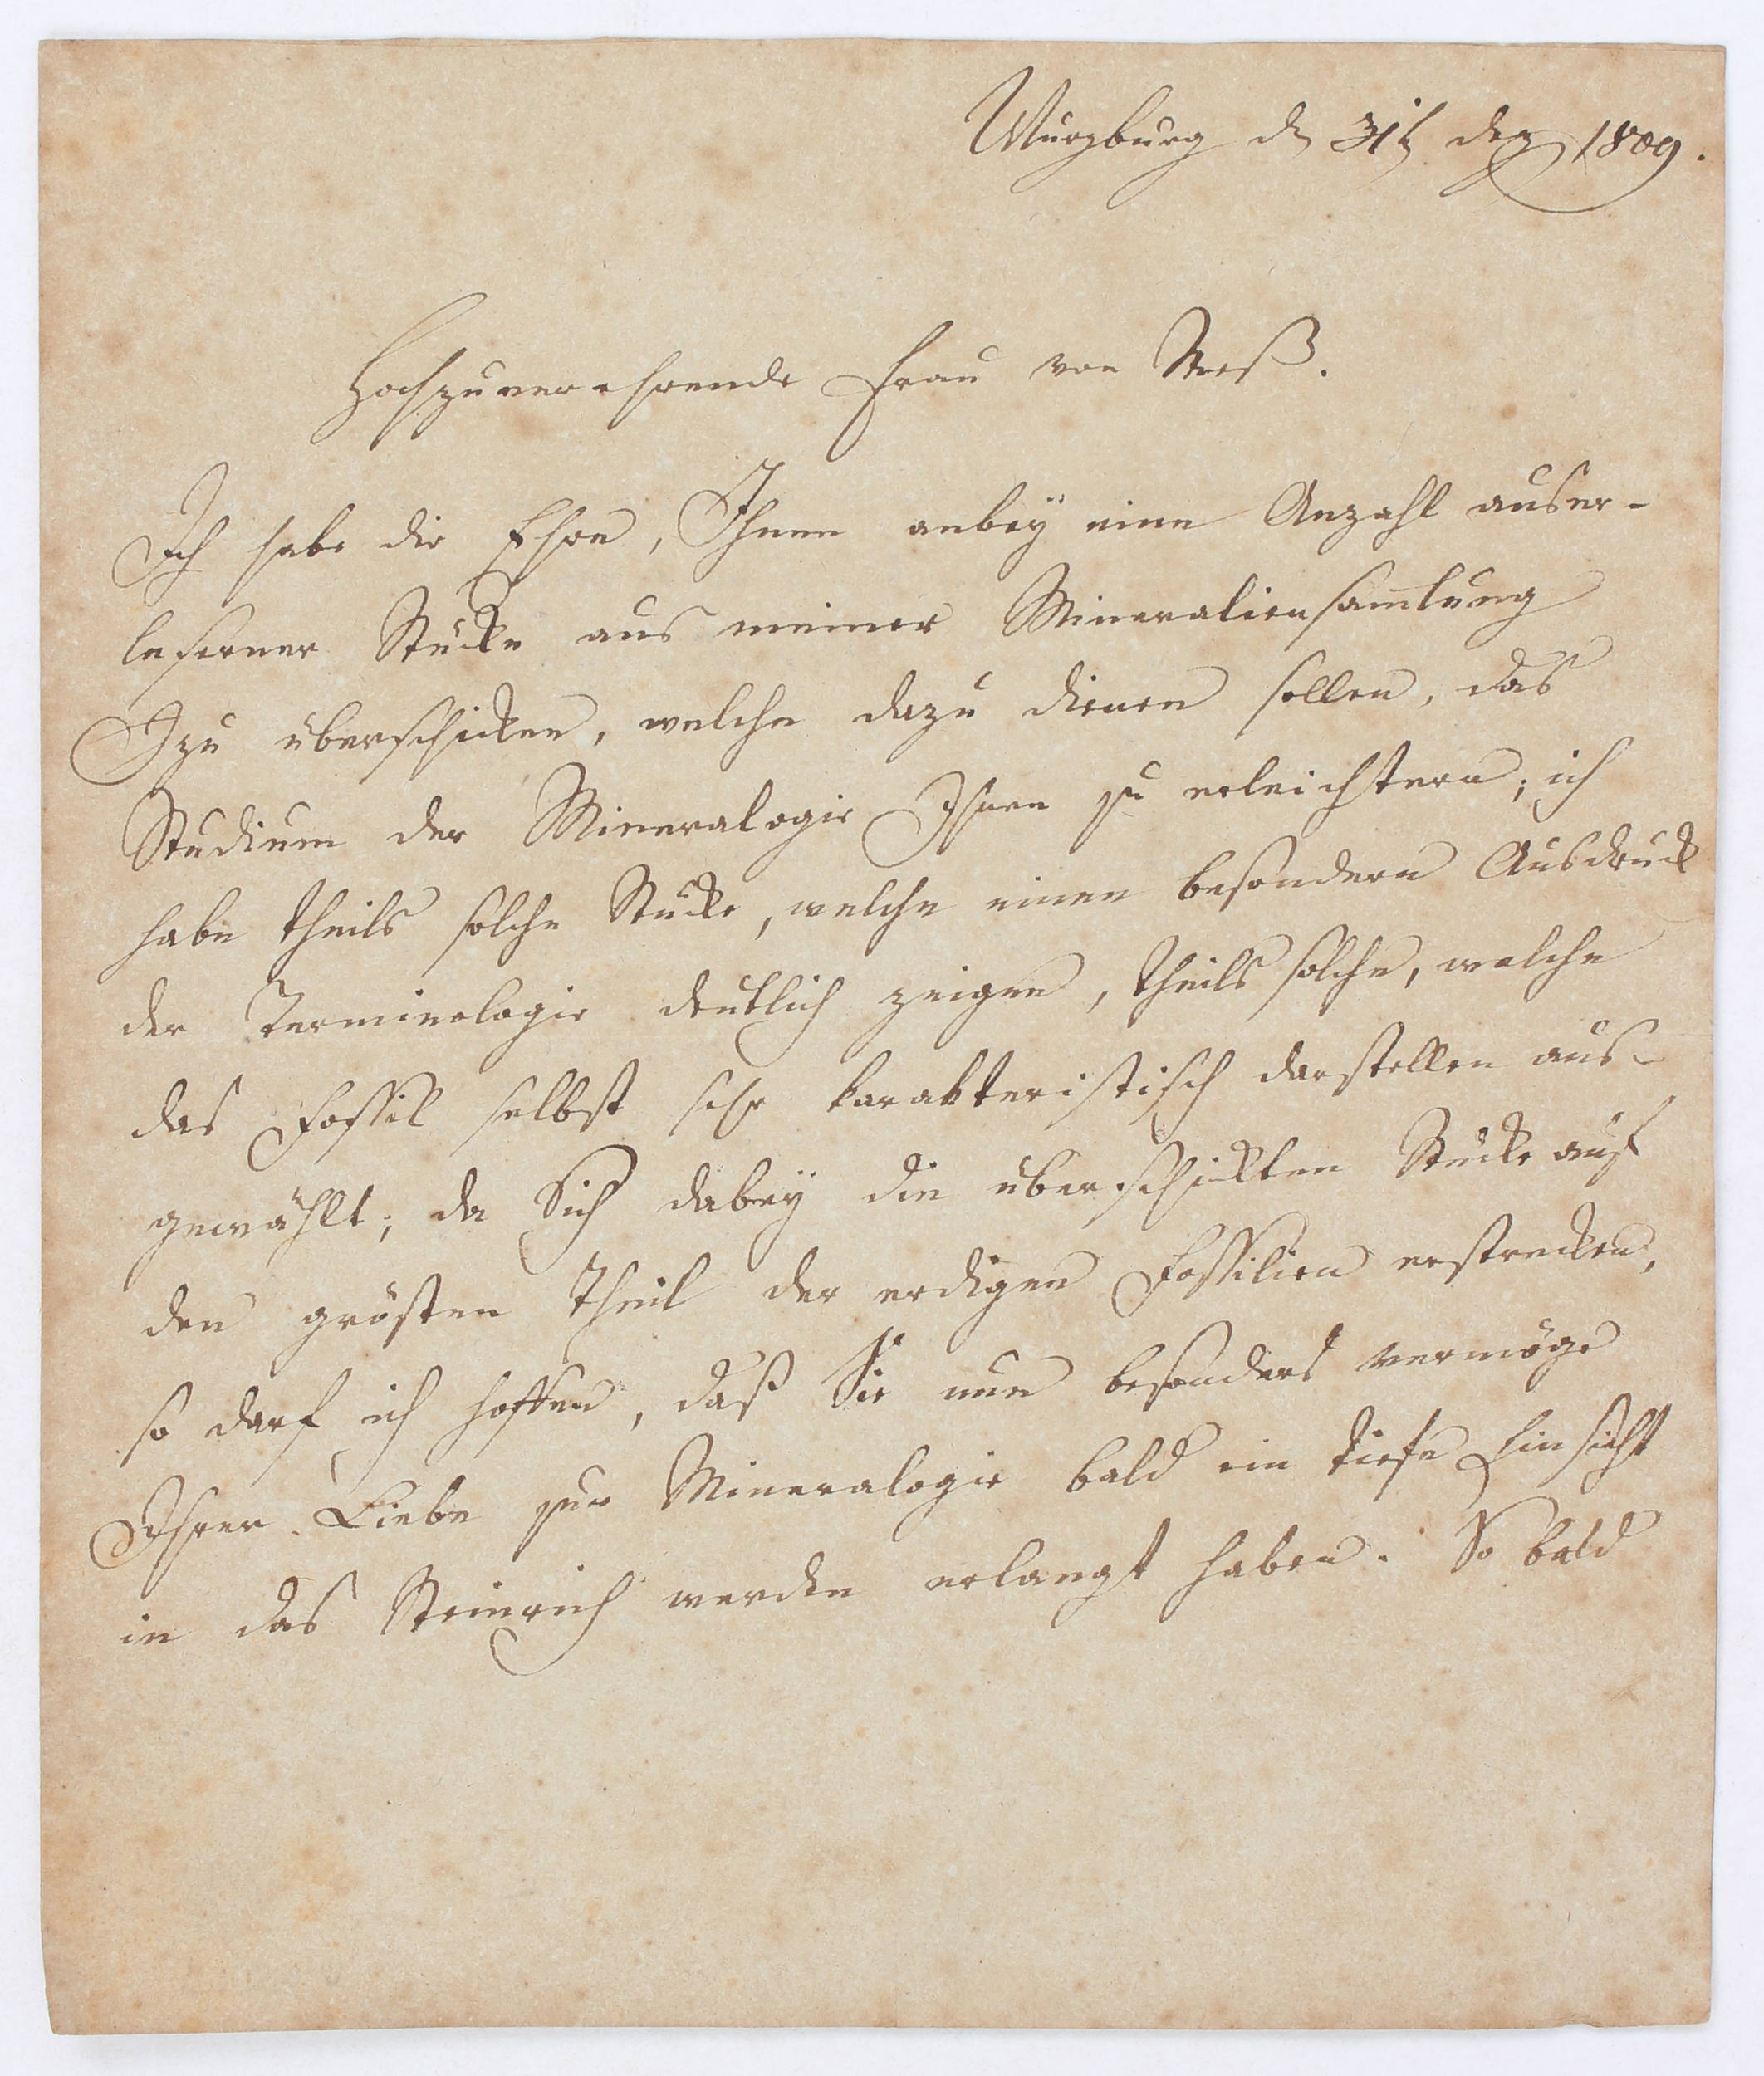 Würzburg d 31t dez 1809.
Hochzuverehrende Frau von
Ich habe die Ehre, Ihnen anbeÿ eine Anzahl auser-
lesener Stücke aus meiner Mineraliensam̄lung
zu überschicken, welche dazu dienen sollen, das
Studium der Mineralogie Ihnen zu erleichtern; ich
habe theils solche Stücke, welche einen besondern Ausdruck
der Terminologie deutlich zeigen, theils solche, welche
das Fossil selbst sehr karakteristisch darstellen aus-
gewählt; da Sich dabeÿ die überschickten Stücke auf
den grösten Theil der erdigen Fossilien erstrecken,
so darf ich hoffen, daß Sie nun besonders vermöge
Ihrer Liebe zur Mineralogie bald ein tiefe Einsicht
in das Steinreich werden erlangt haben. So bald